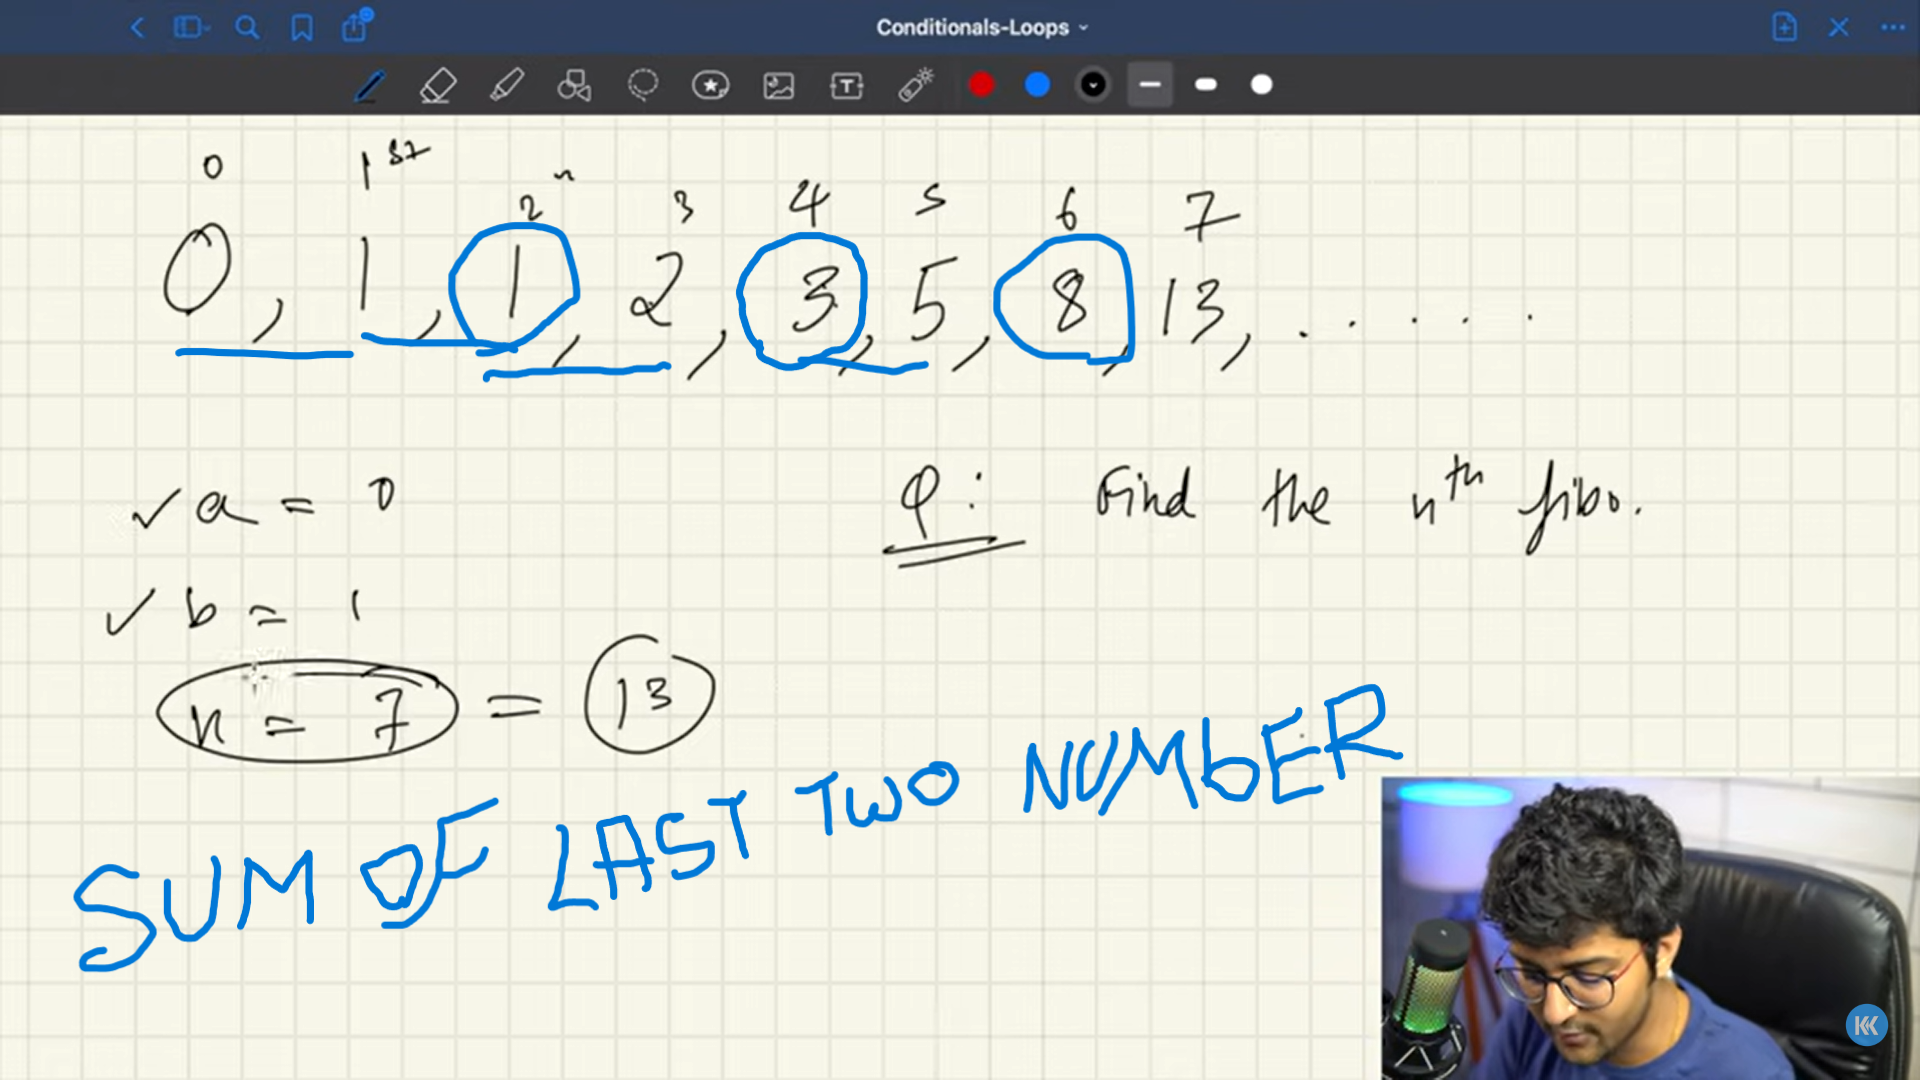 Conditionals-Loops
0 1st 2n 3 4 5 6 7
0, 1, 1, 2, 3, 5, 8, 13, . . . . .
a = 0
Q: Find the nth fibo.
b = 1
n = 7 = 13
SUM OF LAST TWO NUMBER
KK